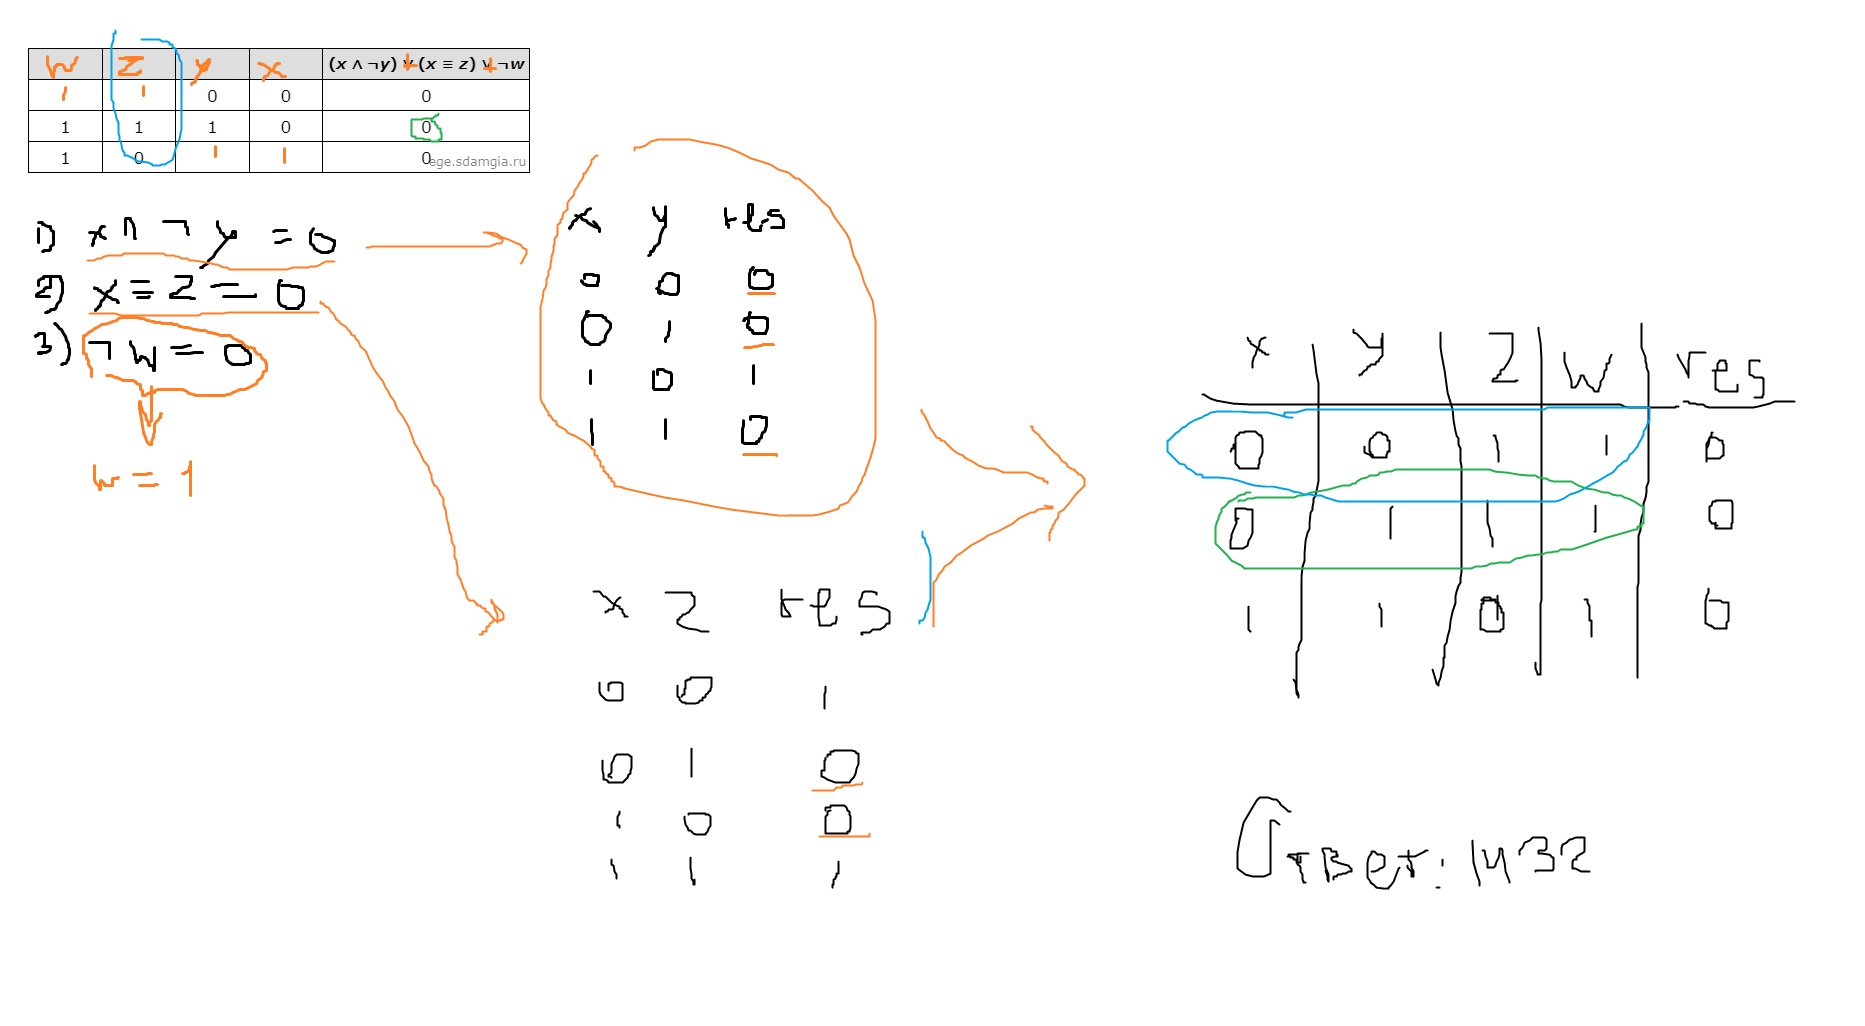 w z y x (x ∧ ¬y) ∨ (x ≡ z) ∨ ¬w
1 1 0 0 0
1 1 1 0 0
1 0 1 1 0
ege.sdamgia.ru
1) x ∧ ¬ y = 0
2) x ≡ z = 0
3) ¬ w = 0
w = 1
x y res
0 0 0
0 1 0
1 0 1
1 1 0
x z res
0 0 1
0 1 0
1 0 0
1 1 1
x y z w res
0 0 1 1 0
0 1 1 1 0
1 1 0 1 0
Ответ: 1432